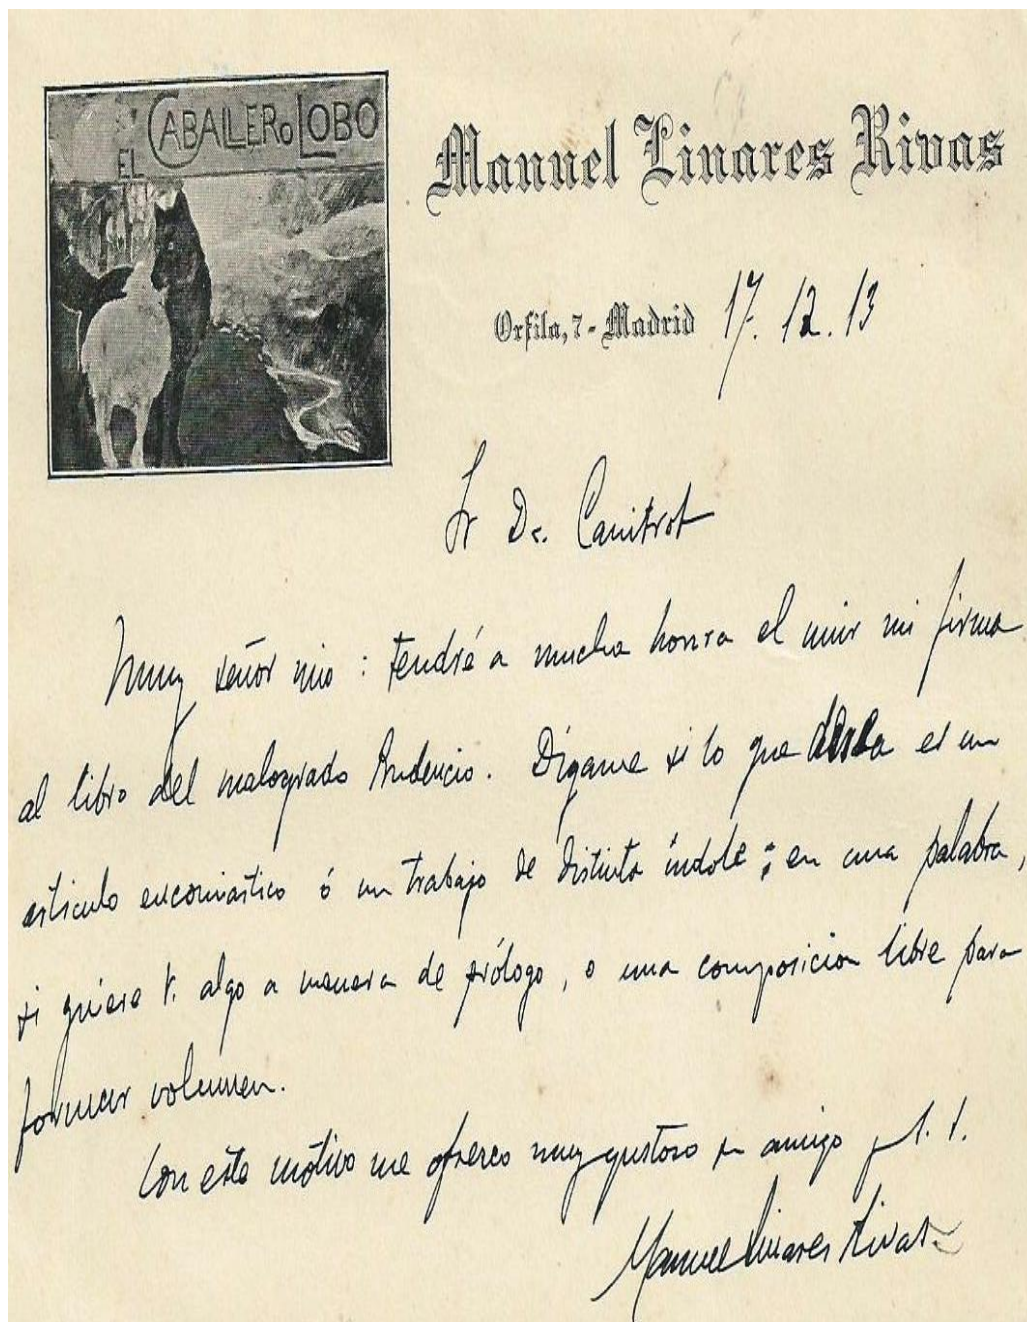 EL CABALLERO LOBO
Manuel Linares Rivas
Orfila, 7 - Madrid 17. 12. 13
Sr Dr. Canitrot
Muy señor mio : tendré a mucha honra el unir mi firma
al libro del malogrado Prudencio. Dígame si lo que desea es un
articulo encomiástico ó un trabajo de distinta índole ; en una palabra,
si quiere V. algo a manera de prólogo, o una composicion libre para
formar volumen.
Con este motivo me ofrezco muy gustoso su amigo y s. s.
Manuel Linares Rivas